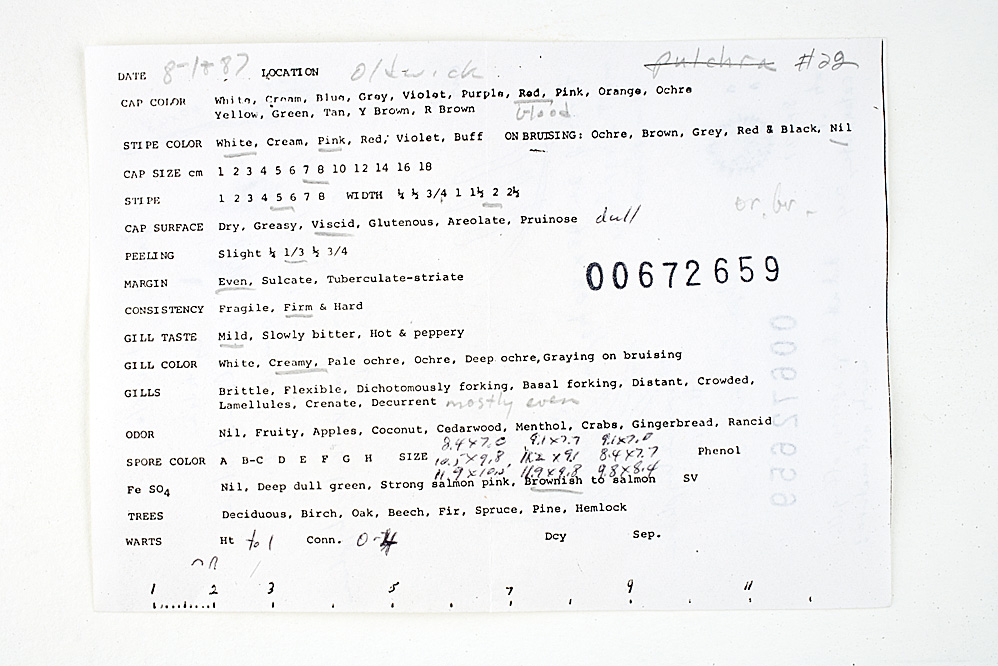 DATE 8-1-87 LOCATION Oldwick pulchra #22
CAP COLOR White, Cream, Blue, Grey, Violet, Purple, Red, Pink, Orange, Ochre
Yellow, Green, Tan, Y Brown, R Brown blood
STIPE COLOR White, Cream, Pink, Red, Violet, Buff ON BRUISING: Ochre, Brown, Grey, Red & Black, Nil
CAP SIZE cm 1 2 3 4 5 6 7 8 10 12 14 16 18
STIPE 1 2 3 4 5 6 7 8 WIDTH ¼ ½ 3/4 1 1½ 2 2½
or. br.
CAP SURFACE Dry, Greasy, Viscid, Glutenous, Areolate, Pruinose dull
PEELING Slight ¼ 1/3 ½ 3/4
00672659
MARGIN Even, Sulcate, Tuberculate-striate
CONSISTENCY Fragile, Firm & Hard
GILL TASTE Mild, Slowly bitter, Hot & peppery
GILL COLOR White, Creamy, Pale ochre, Ochre, Deep ochre, Graying on bruising
GILLS Brittle, Flexible, Dichotomously forking, Basal forking, Distant, Crowded,
Lamellules, Crenate, Decurrent mostly even
ODOR Nil, Fruity, Apples, Coconut, Cedarwood, Menthol, Crabs, Gingerbread, Rancid
8.4x7.0 9.1x7.7 9.1x7.0
SPORE COLOR A B-C D E F G H SIZE 10.5x9.8 11.2x9.1 8.4x7.7 Phenol
11.9x10.5 11.9x9.8 9.8x8.4
Fe SO4 Nil, Deep dull green, Strong salmon pink, Brownish to salmon SV
TREES Deciduous, Birch, Oak, Beech, Fir, Spruce, Pine, Hemlock
WARTS Ht to 1 Conn. 0-4 Dcy Sep.
1 2 3 5 7 9 11